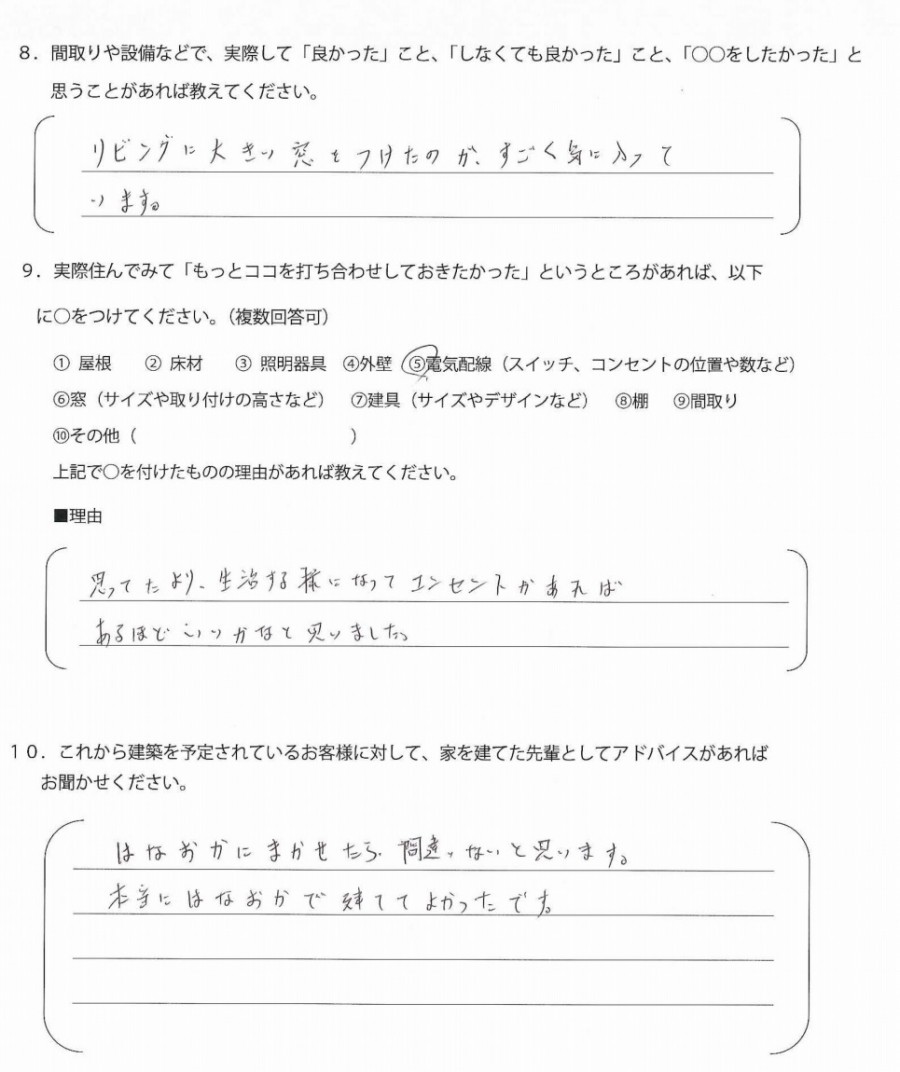 ８．間取りや設備などで、実際して「良かった」こと、「しなくても良かった」こと、「○○をしたかった」と
思うことがあれば教えてください。
リビングに大きい窓をつけたのが、すごく気に入って
います。
９．実際住んでみて「もっとココを打ち合わせしておきたかった」というところがあれば、以下
に○をつけてください。（複数回答可）
① 屋根　② 床材　③ 照明器具　④外壁　⑤電気配線（スイッチ、コンセントの位置や数など）
⑥窓（サイズや取り付けの高さなど）　⑦建具（サイズやデザインなど）　⑧棚　⑨間取り
⑩その他（　　　　　　　　　　　　）
上記で○を付けたものの理由があれば教えてください。
■理由
思ってたより、生活する様になってコンセントがあれば
あるほどいいかなと思いました。
１０．これから建築を予定されているお客様に対して、家を建てた先輩としてアドバイスがあれば
お聞かせください。
はなおかにまかせたら、間違いないと思います。
本当にはなおかで建ててよかったです。